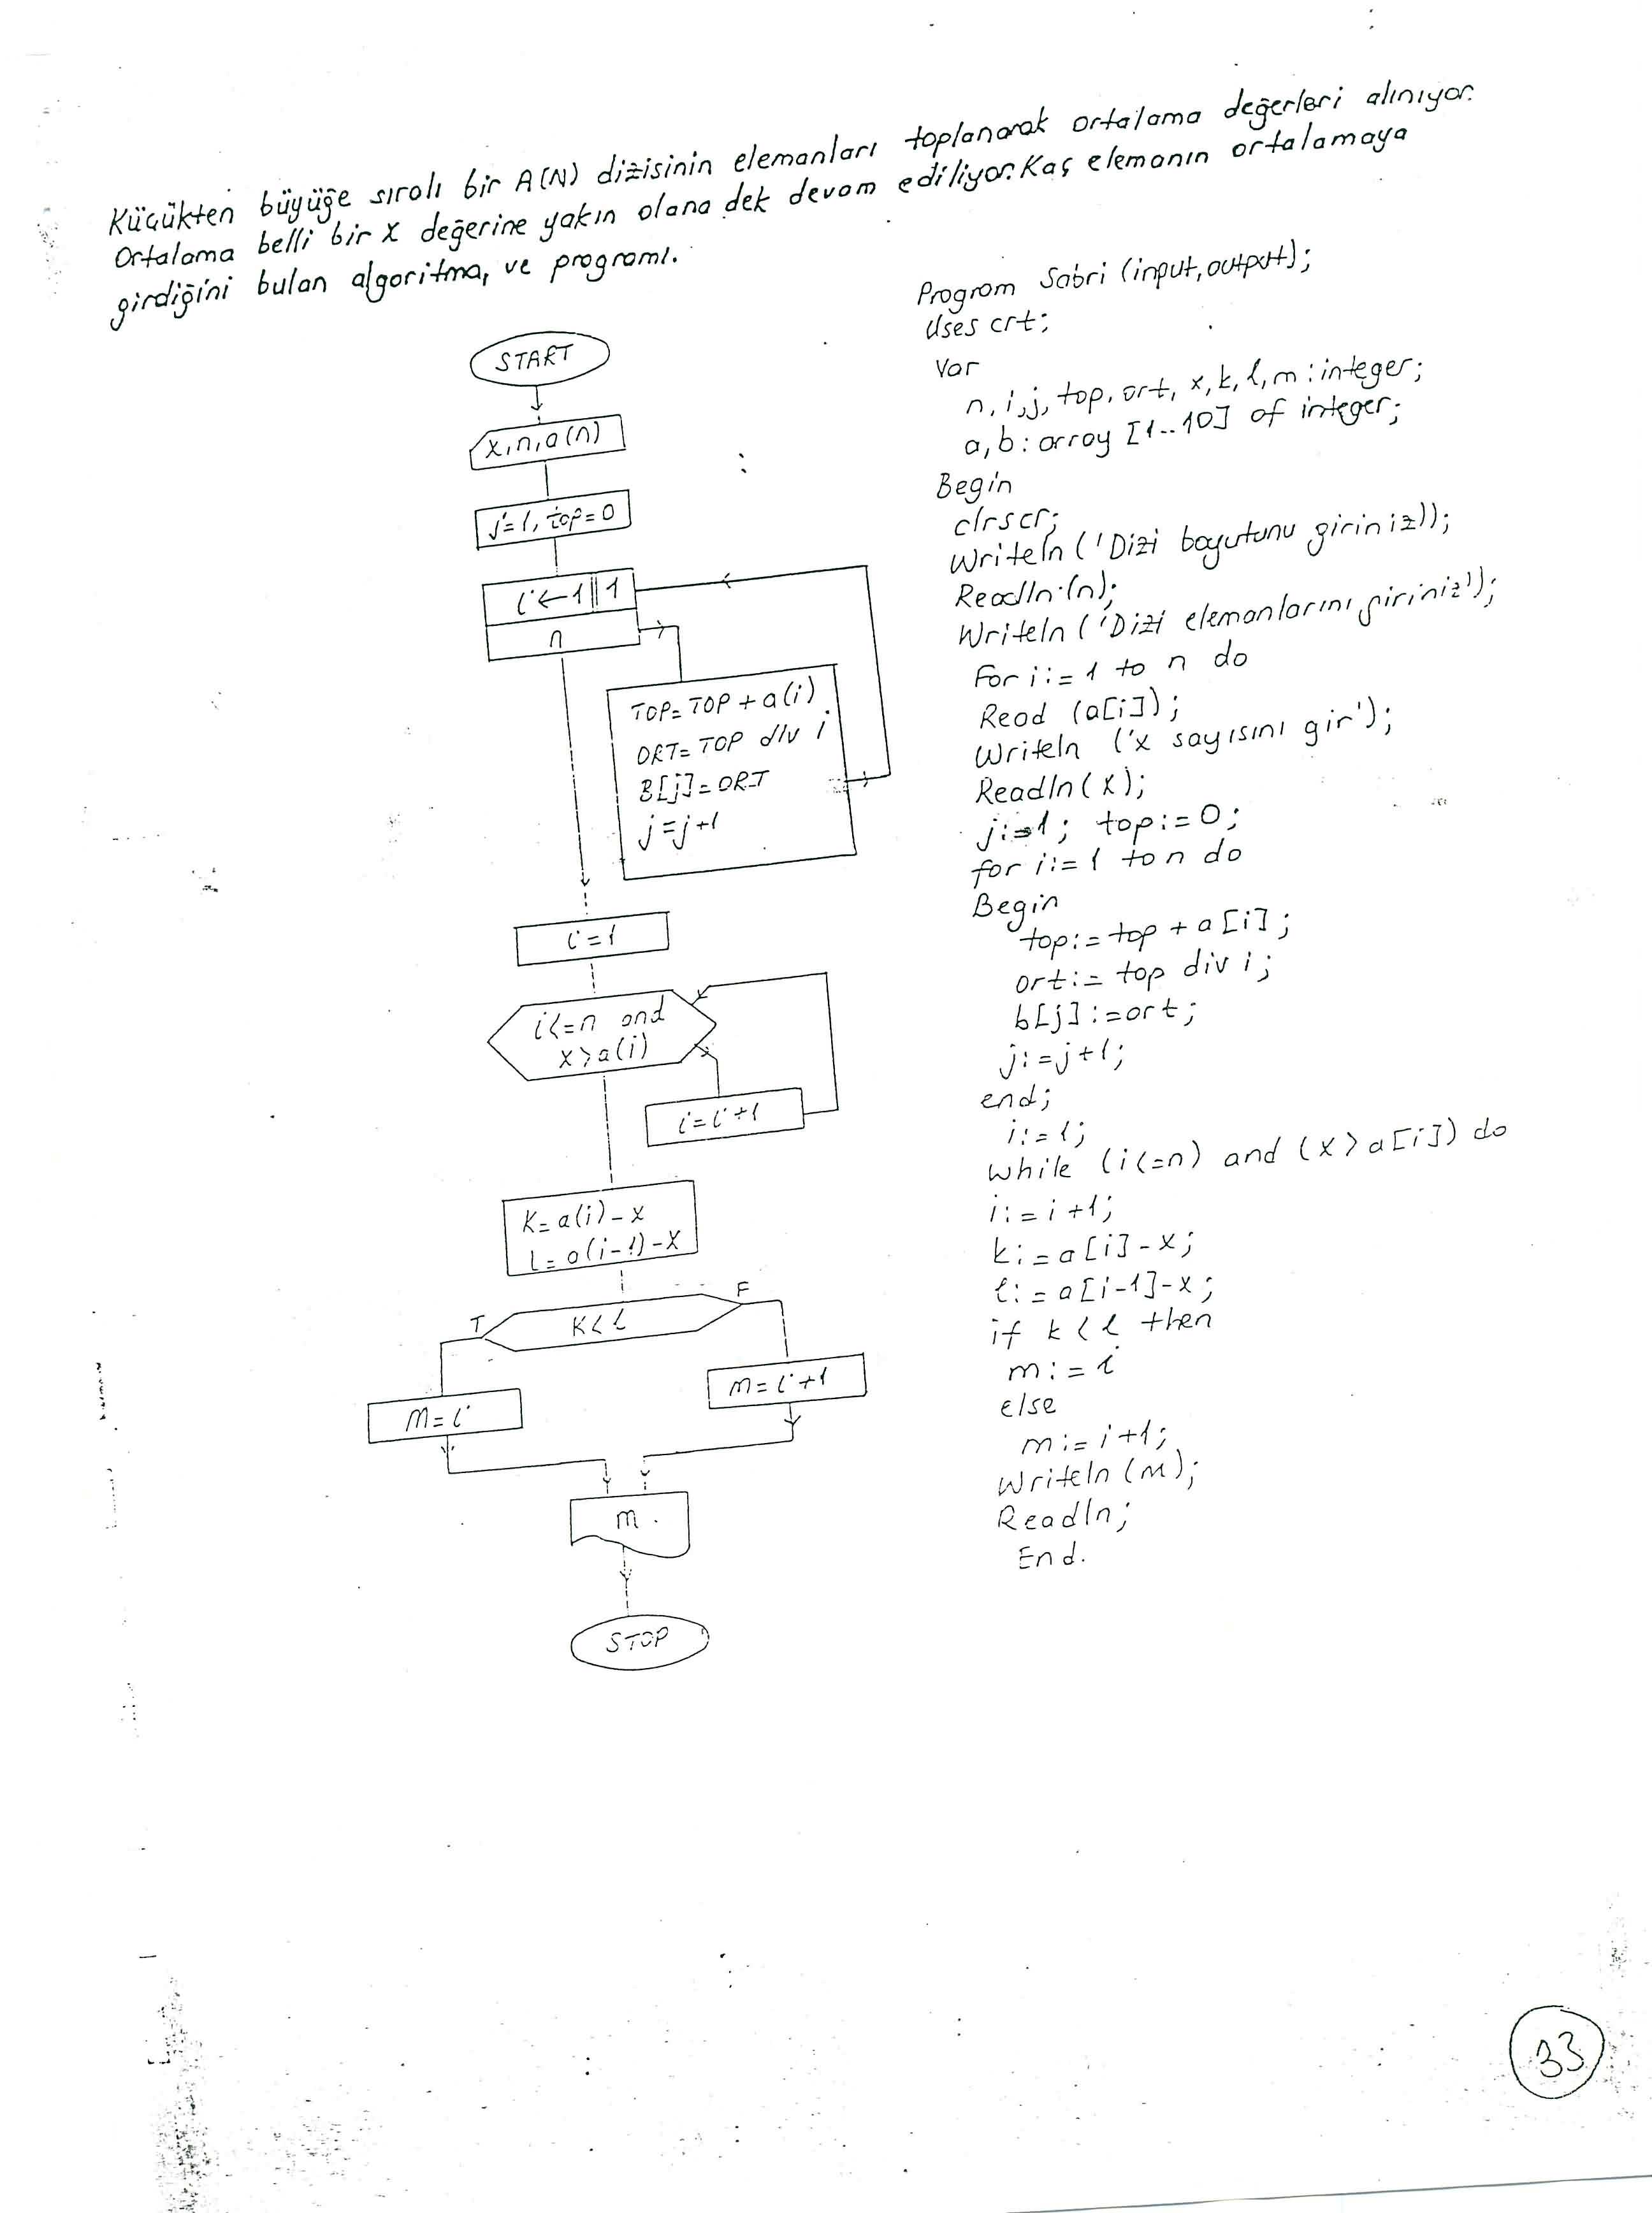 Küçükten büyüğe sıralı bir A(N) dizisinin elemanları toplanarak ortalama değerleri alınıyor.
Ortalama belli bir x değerine yakın olana dek devam ediliyor. Kaç elemanın ortalamaya
girdiğini bulan algoritma, ve programı.
START
x,n,a(n)
j=1, top=0
i←1||1
n
TOP=TOP+a(i)
ORT=TOP div i
B[j]=ORT
j=j+1
i=1
i<=n and
x>a(i)
i=i+1
K=a(i)-x
L=a(i-1)-x
T
K<L
F
M=i
m=i+1
m
STOP
Program Sabri (input,output);
Uses crt;
Var
n,i,j,top,ort,x,k,l,m:integer;
a,b:array [1..10] of integer;
Begin
clrscr;
Writeln ('Dizi boyutunu giriniz));
Readln(n);
Writeln ('Dizi elemanlarını giriniz');
For i:=1 to n do
Read (a[i]);
Writeln ('x sayısını gir');
Readln(x);
j:=1; top:=0;
for i:=1 to n do
Begin
top:=top+a[i];
ort:=top div i;
b[j]:=ort;
j:=j+1;
end;
i:=1;
while (i<=n) and (x>a[i]) do
i:=i+1;
k:=a[i]-x;
l:=a[i-1]-x;
if k<l then
m:=i
else
m:=i+1;
Writeln(m);
Readln;
End.
33